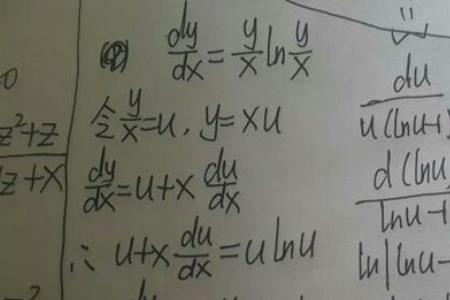 0
z²+z
z+x
(4) dy/dx = y/x ln y/x
令 y/x = u, y = xu
dy/dx = u+x du/dx
∴ u+x du/dx = u ln u
du
u(lnu-1)
d(lnu
lnu-1
ln|lnu-